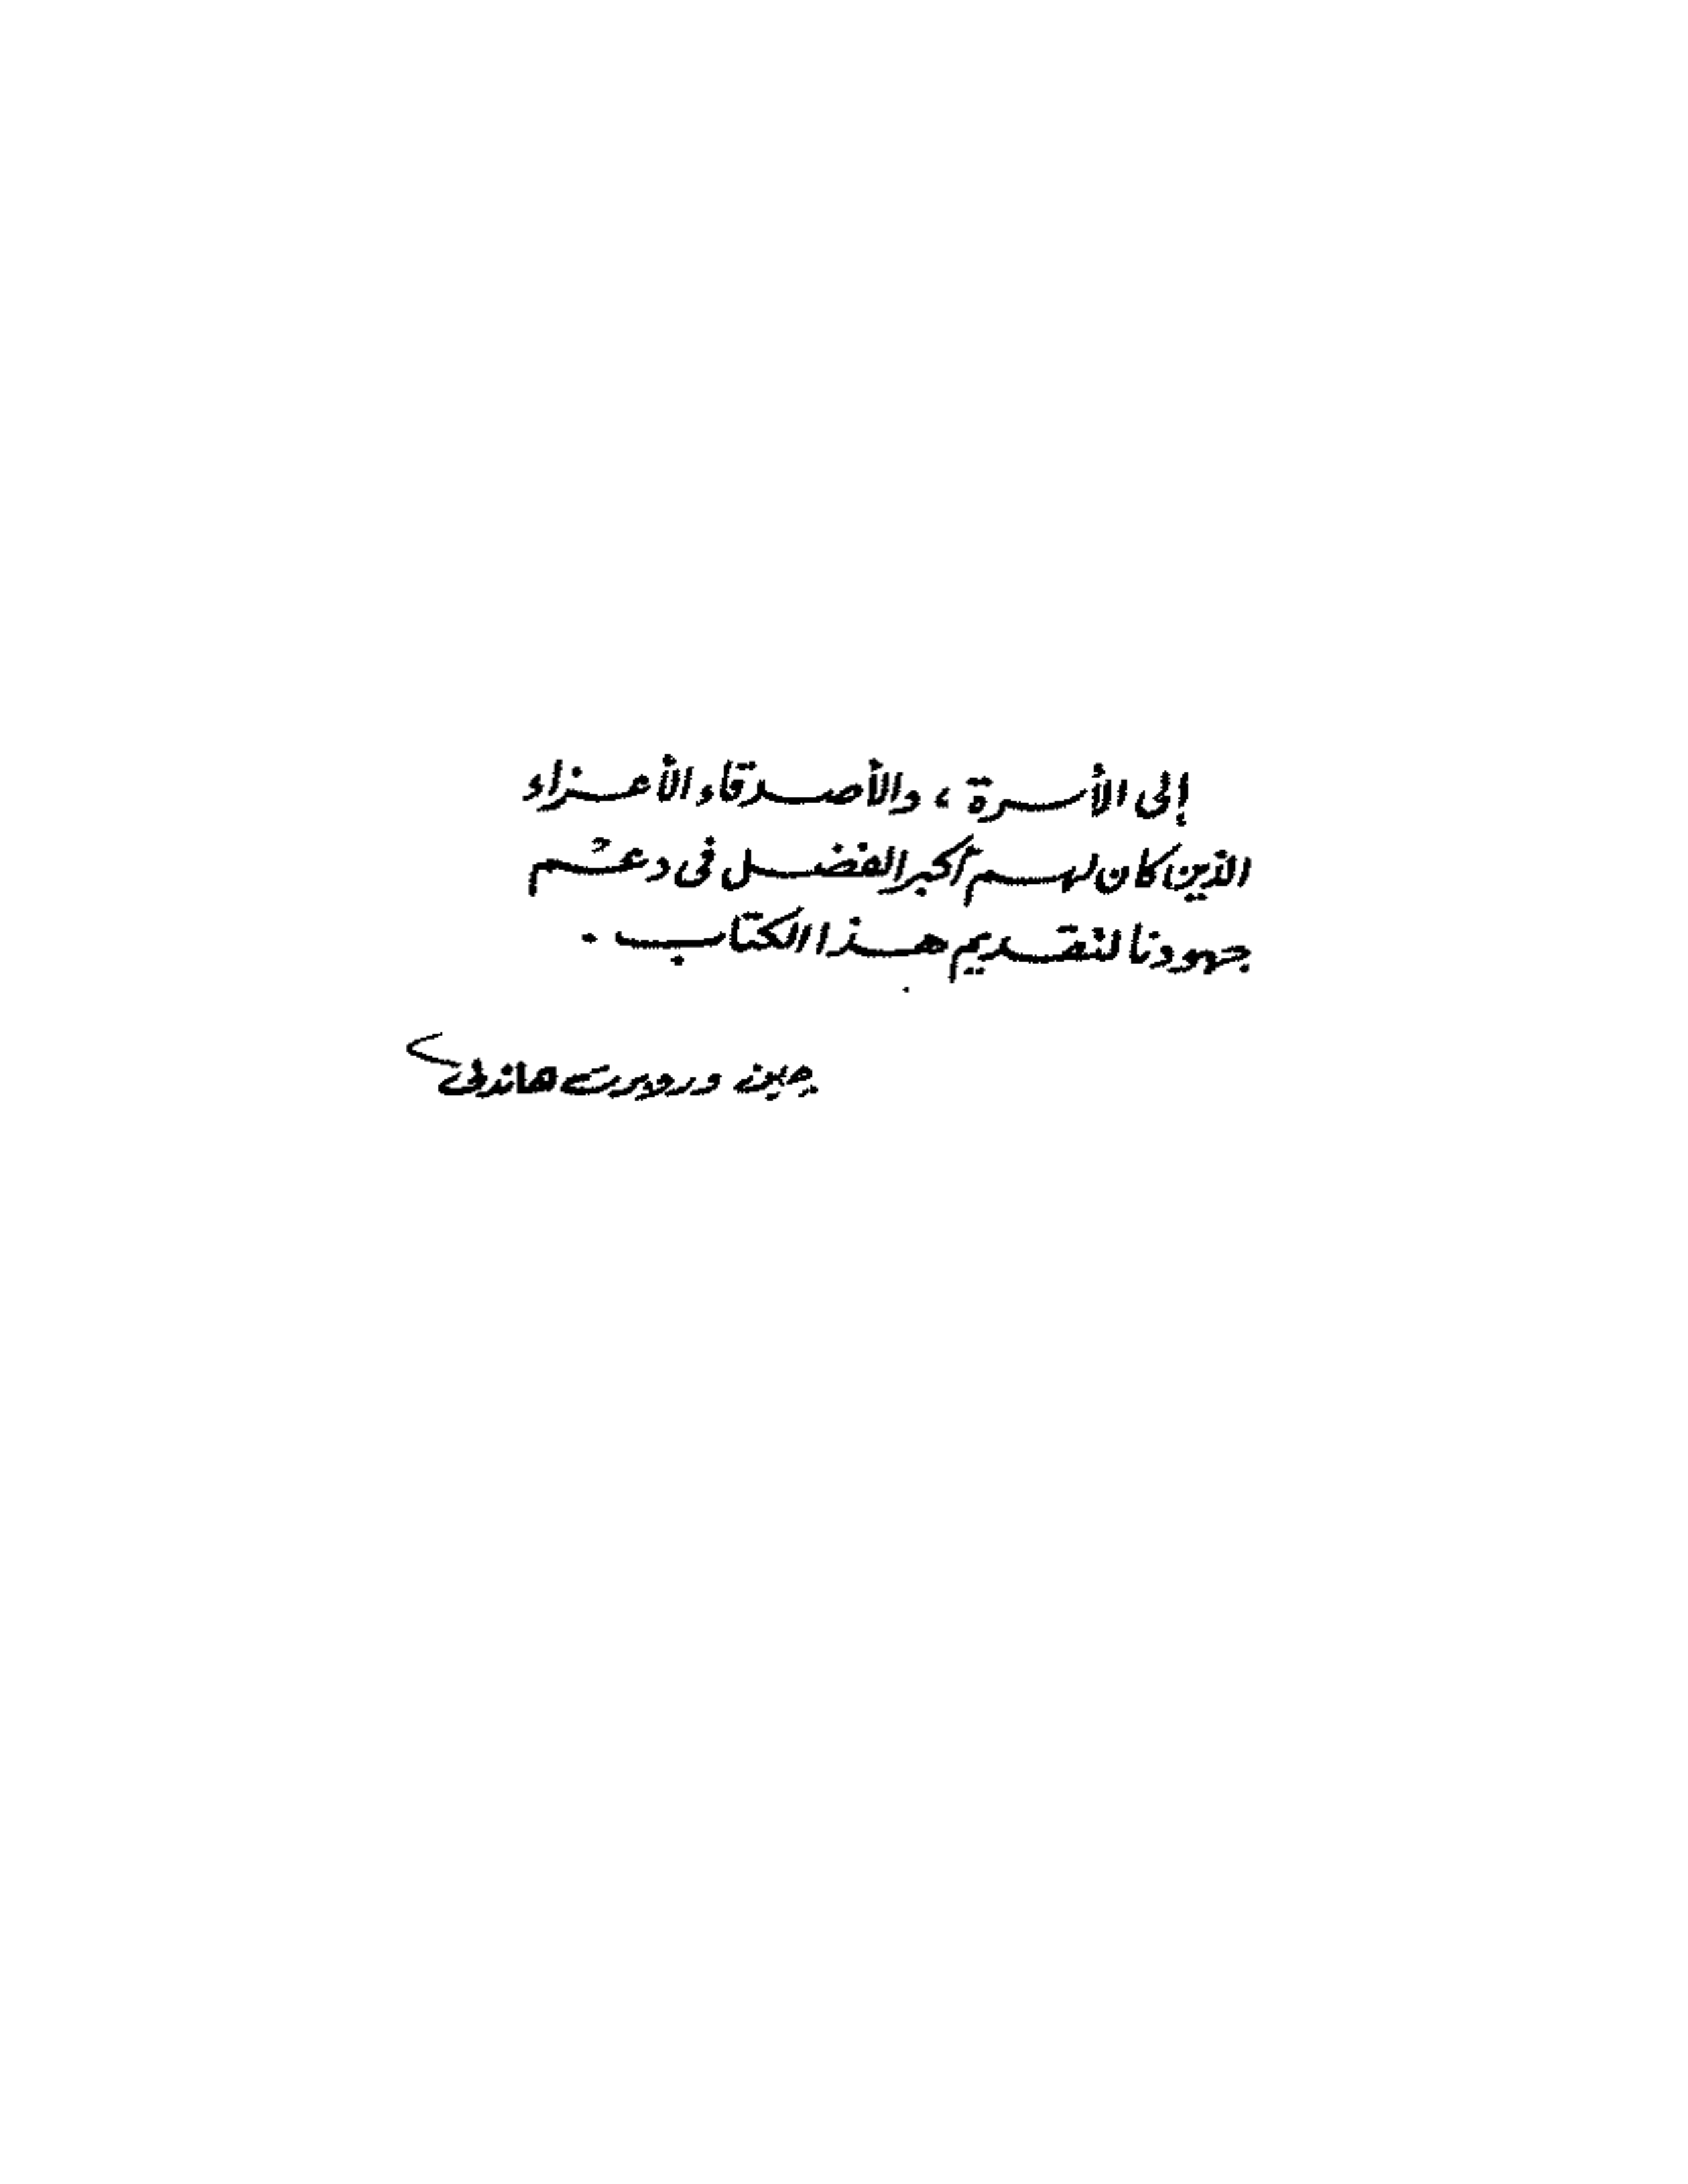 إلى الأسرة ، والأصدقاء الأعزاء
الذين كان لهم أكبر الفضل فى دعم
جهودنا لتقديم هذا الكتاب .
جين وروبرت هاندلى